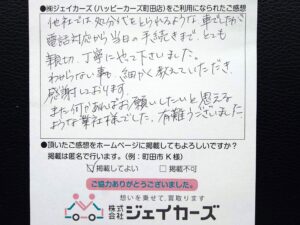 ●㈱ジェイカーズ(ハッピーカーズ町田店)をご利用になられたご感想
他社では処分代をとられるような車でしたが
電話対応から当日の手続きまで、とても
親切、丁寧にやって下さいました。
わからない事も、細かく教えていただき、
感謝しております。
また何かあればお願いしたいと思える
ような業社様でした。有難うございました。
●頂いたご感想をホームページに掲載してもよろしいですか?
掲載は匿名で行います。(例:町田市K様)
掲載してよい 掲載不可
ご協力ありがとうございました。
想いを乗せて、買取ります
株式会社ジェイカーズ